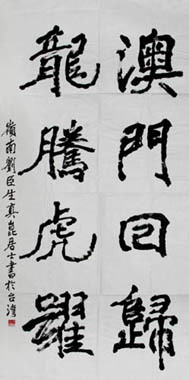 澳門回歸
龍騰虎躍
嶺南劉臣生真毘居士書於台灣